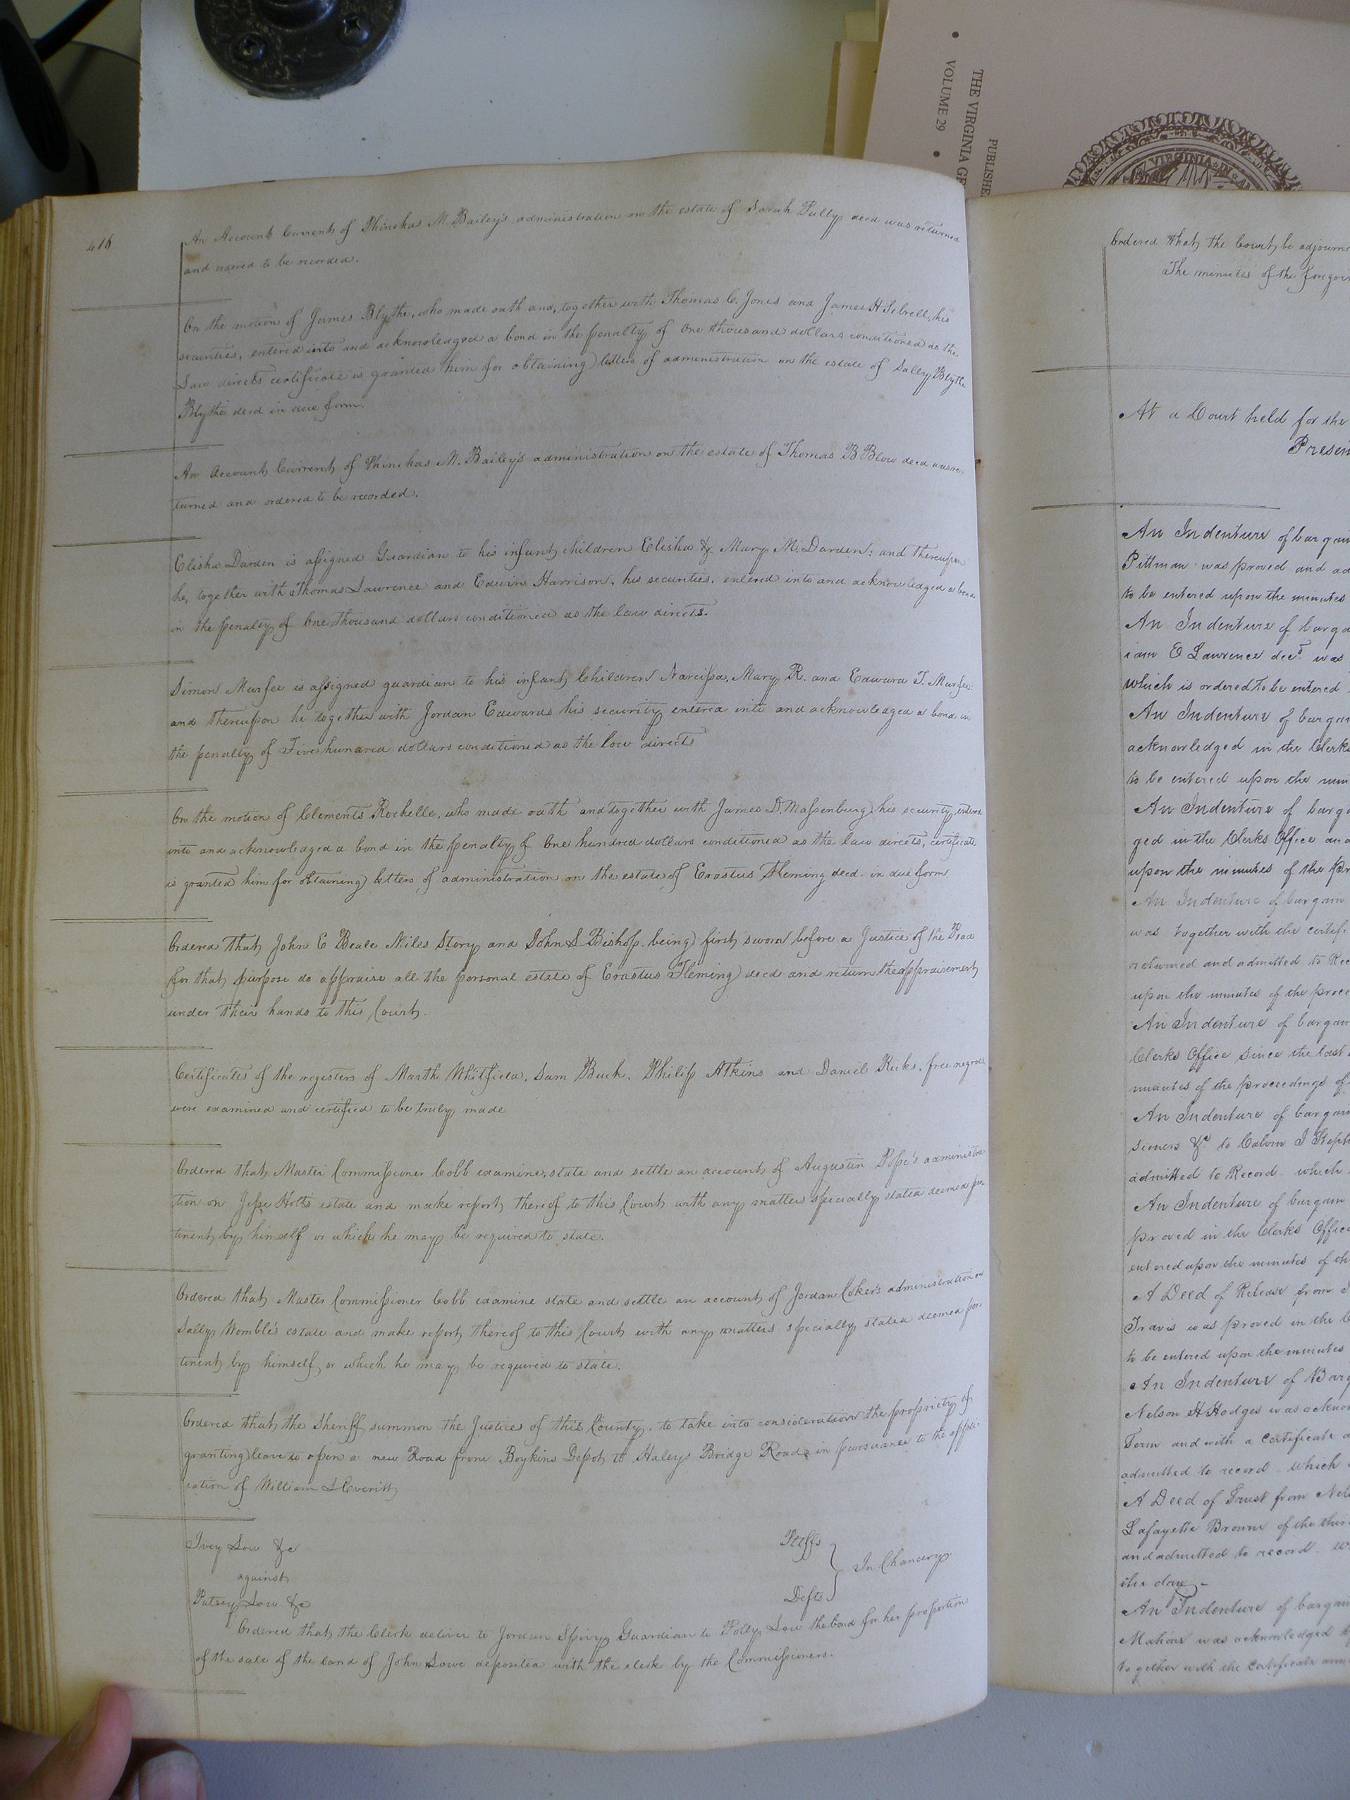 THE VIRGINIA GE
VOLUME 29
PUBLISHE
VIRGINIA
416
An Account Current of Phinehas M. Bailey's administration on the estate of Sarah Pully decd was returned
and ordered to be recorded.
On the motion of James Blythe, who made oath and, together with Thomas C. Jones and James H Sebrell, his
securities, entered into and acknowledged a bond in the penalty of One thousand dollars conditioned as the
Law directs certificate is granted him for obtaining letters of administration on the estate of Sally Blythe
Blythe decd in due form.
An Account Current of Phinehas M. Bailey's administration on the estate of Thomas B Blow decd was re-
turned and ordered to be recorded.
Elisha Darden is assigned Guardian to his infant children Elisha & Mary M. Darden: and thereupon
he, together with Thomas Lawrence and Edwin Harrison, his securities, entered into and acknowledged a bond
in the penalty of One thousand dollars conditioned as the law directs.
Simon Murfee is assigned guardian to his infant Children Narcissa, Mary R. and Edward T. Murfee:
and thereupon he together with Jordan Edwards his security entered into and acknowledged a bond in
the penalty of Five hundred dollars conditioned as the law directs
On the motion of Clements Rochelle, who made oath and together with James D. Massenburg his security, entered
into and acknowledged a bond in the penalty of One hundred dollars conditioned as the law directs, certificate
is granted him for obtaining letters of administration on the estate of Erastus Fleming decd. in due form
Ordered that John E Beale Niles Story and John S. Bishop being first sworn before a Justice of the Peace
for that purpose do appraise all the personal estate of Erastus Fleming decd and return the appraisement
under their hands to this Court.
Certificates of the registers of Martha Whitfield, Sam Buck, Philip Atkins and Daniel Ricks, free negroes
were examined and certified to be truly made
Ordered that Master Commissioner Cobb examine, state and settle an account of Augustin Pope's administra-
tion on Jesse Holts estate and make report thereof to this Court with any matter specially stated deemed per-
tinent by himself or which he may be required to state.
Ordered that Master Commissioner Cobb examine state and settle an account of Jordan Coker's administration on
Sally Womble's estate and make report thereof to this Court with any matters specially stated deemed per-
tinent by himself, or which he may be required to state.
Ordered that the Sheriff summon the Justices of this County, to take into consideration the propriety of
granting leave to open a new Road from Boykins Depot to Haleys Bridge Road in pursuance to the appli-
cation of William L Everitt
Ivey Low &c Pltffs
against In Chancery
Patsey Low &c Defts
Ordered that the Clerk deliver to Jordan Spivy Guardian to Polly Low the bond for her proportion
of the sale of the land of John Lowe deposited with the clerk by the Commissioners.
Ordered that the Court be adjourne
The minutes of the foregoi
At a Court held for the
Presen
An Indenture of bargain
Pittman was proved and ad
to be entered upon the minutes
An Indenture of barga
iam E Lawrence decd was
which is ordered to be entered
An Indenture of bargai
acknowledged in the Clerks
to be entered upon the min
An Indenture of barga
ged in the Clerks Office and
upon the minutes of the pr
An Indenture of bargain
was together with the certifi
returned and admitted to Rec
upon the minutes of the proce
An Indenture of bargain
Clerks Office since the last
minutes of the proceedings of
An Indenture of bargain
sioners &c to Calvin J
admitted to Record. which
An Indenture of bargain
proved in the Clerks Office
entered upon the minutes of th
A Deed of Release from
Travis was proved in the C
to be entered upon the minutes
An Indenture of Barg
Nelson H Hodges was acknow
Term and with a certificate a
admitted to record. which
A Deed of Trust from Nel
Lafayette Brown of the
and admitted to record. w
this day.
An Indenture of bargain
was acknowledged
together with the certificate ann